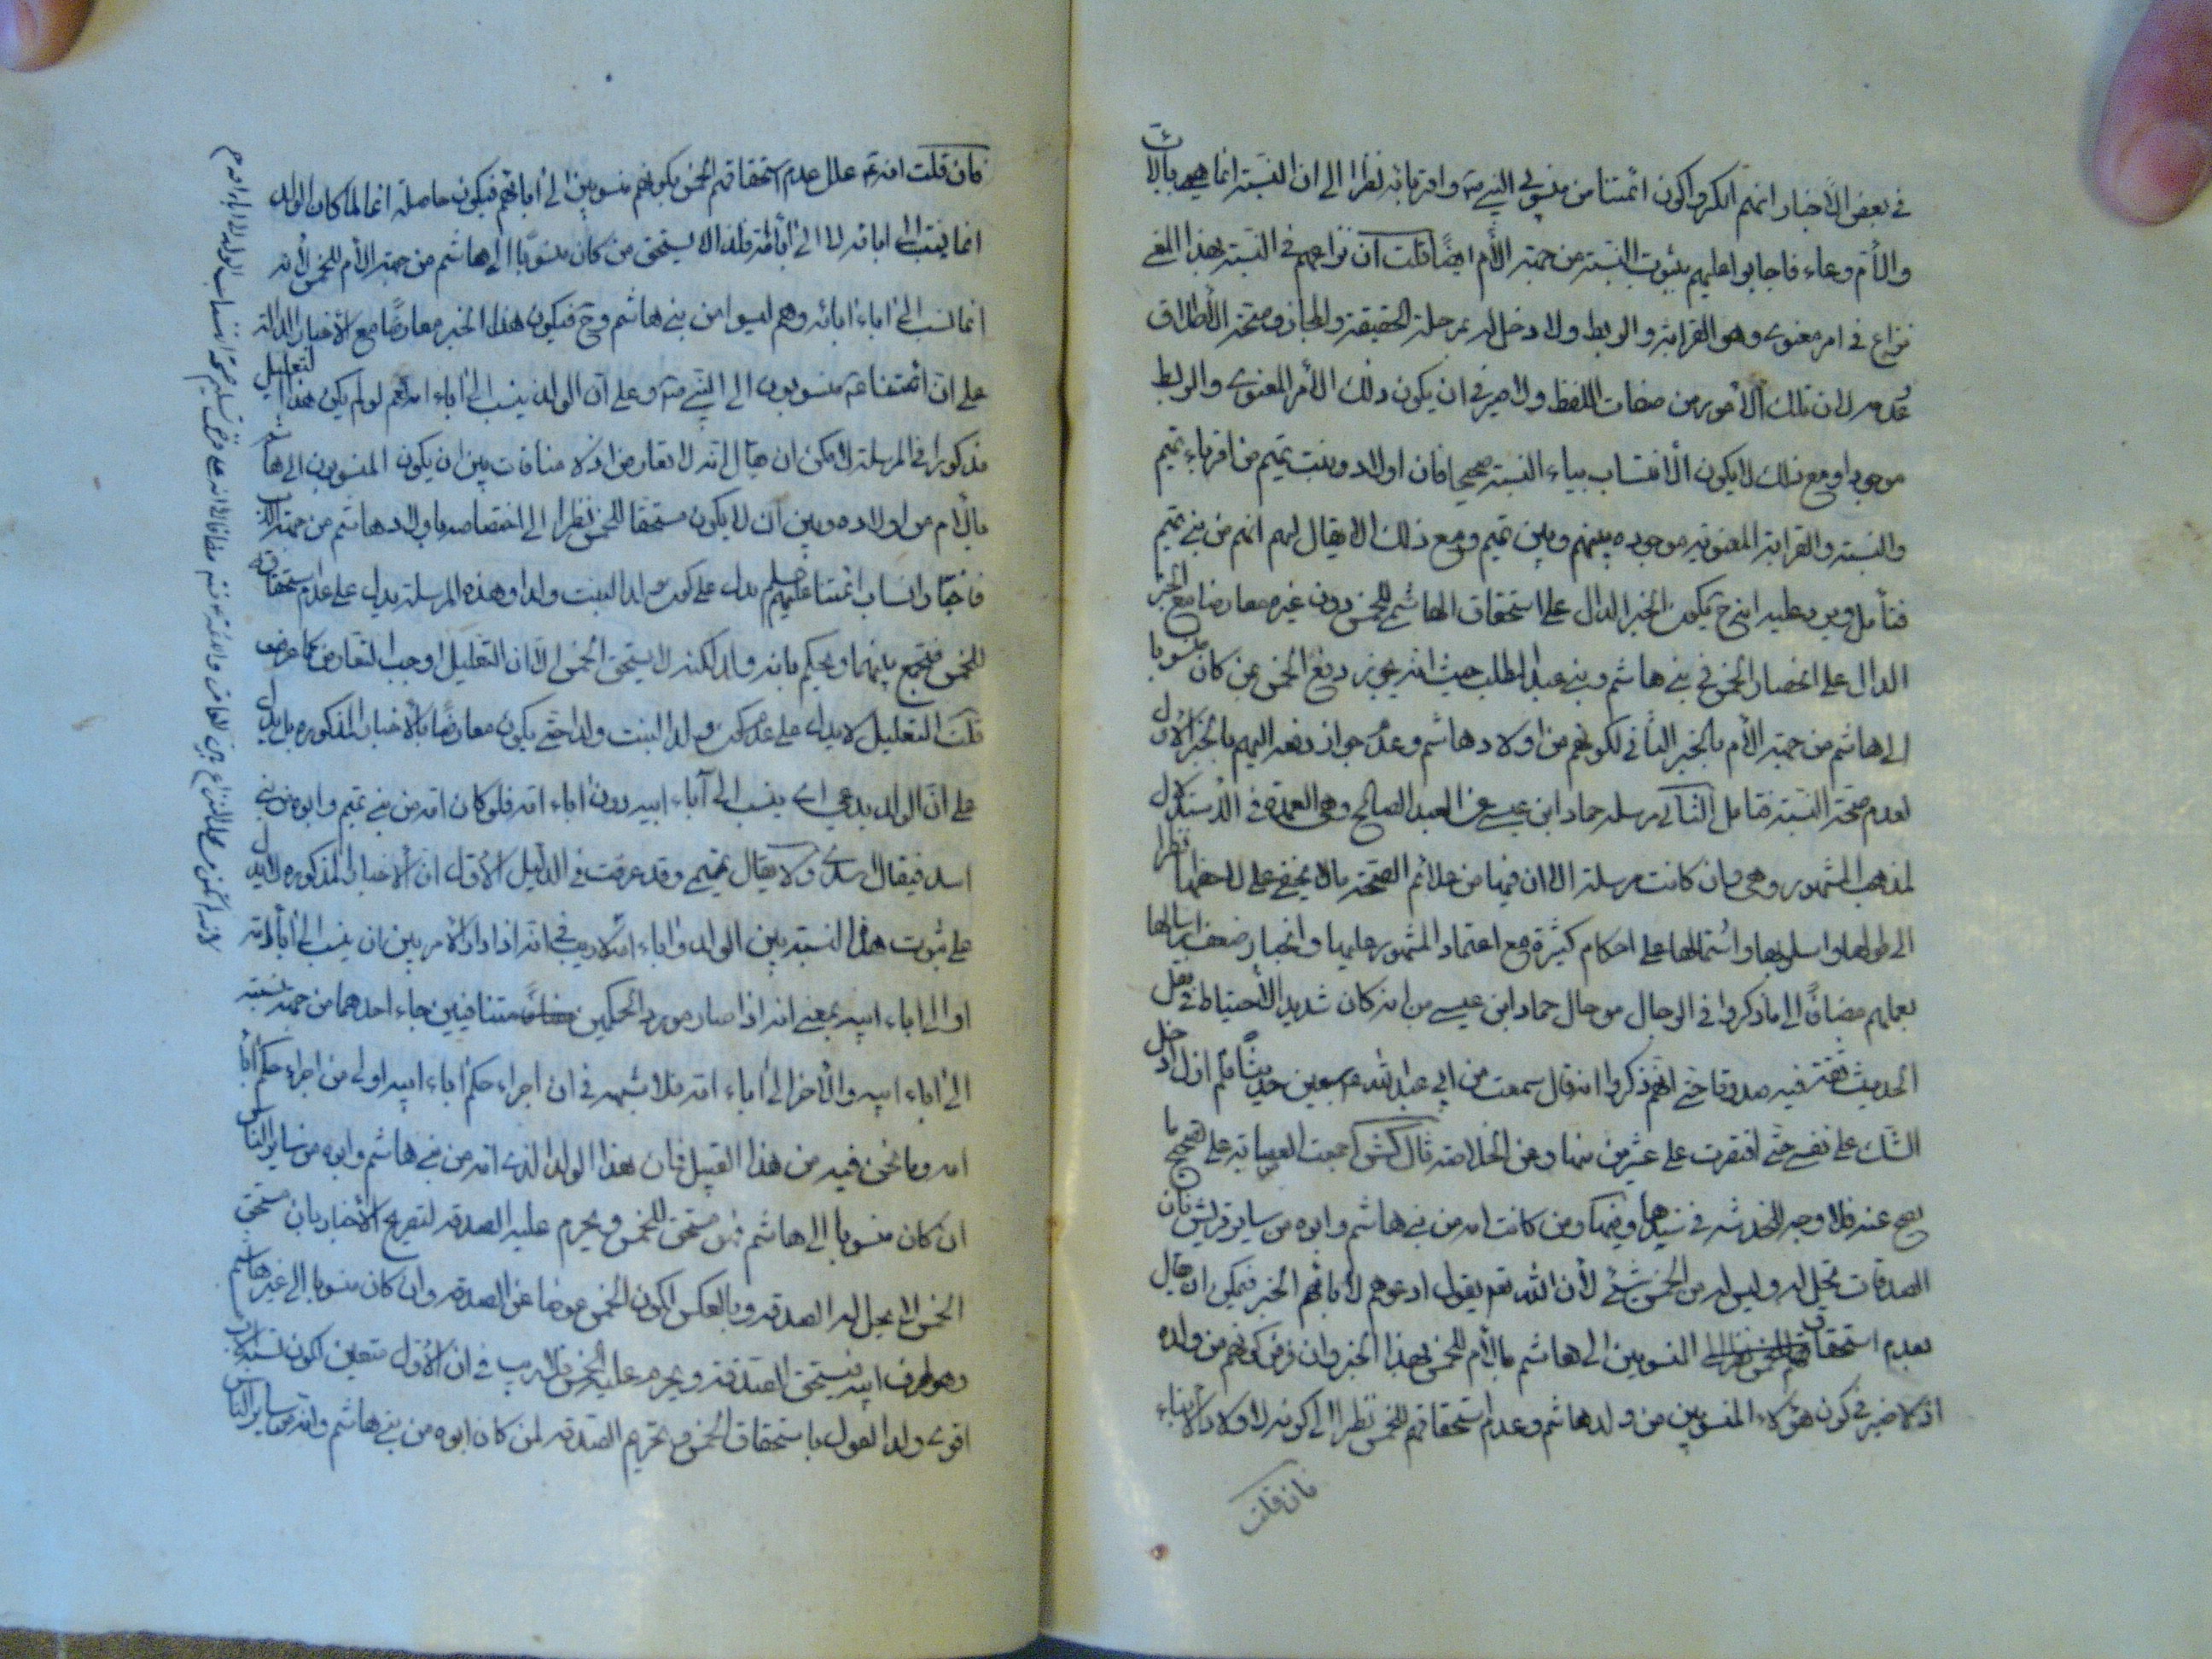 في بعض الأخبار انهم انكروا كون ائمتنا من منسوبي النبي ص واقربائه نظرا الى ان النسبة انما هي بالاب
والام وعاء فاجابوا عليهم بثبوت النسبة من جهة الأم ايضا قلت ان نزاعهم في النسبة بهذا المعنى
نزاع في امر معنوي وهو القرابة والربط ولا دخل له بمرحلة الحقيقة والمجاز وصحة الأطلاق
عدمه لان تلك الأمور من صفات اللفظ ولا ضير في ان يكون ذلك الأمر المعنوي والربط
موجودا ومع ذلك لا يكون الأنتساب بياء النسبة صحيحا فان اولاد بنت تميم من اقرباء تميم
والنسبة والقرابة المعنوية موجوده بينهم وبين تميم ومع ذلك لا يقال لهم انهم من بني تميم
فتأمل ويرد عليه انه ح يكون الخبر الدال على استحقاق الهاشمي للخمس دون غيره معارضا مع الخبر
الدال على انحصار الخمس في بني هاشم وبني عبد المطلب حيث انه يجوز دفع الخمس عن كان منسوبا
الى هاشم من جهة الأم بالخبر الثاني لكونهم من اولاد هاشم وعدم جواز دفعه اليهم بالخبر الأول
لعدم صحة النسبة فتامل الثاني مرسلة حماد ابن عيسى عن العبد الصالح وهي العمدة في الاستدلال
لمذهب المشهور وهي وان كانت مرسلة الا ان فيها من علائم الصحة ما لا يخفى على لاحظها نظرا
الى طولها واسلوبها واشتمالها على احكام كثيرة مع اعتماد المشهور عليها وانجبار ضعف ارسالها
بعملهم مضافا الى ما ذكروا في الرجال من حال حماد ابن عيسى من انه كان شديد الأحتياط في نقل
الحديث ثقة فيه صدوقا حتى انهم ذكروا انه قال سمعت من ابي عبد الله ع سبعين حديثا فلم ازل ادخل
الشك على نفسي حتى اقتصرت على عشرين منها وعن الخلاصة قال كش اجمعت العصابة على تصحيح ما
يصح عنه فلا وجه للخدشة في سندها وفيها ومن كانت امه من بني هاشم وابوه من ساير قريش فان
الصدقات تحل له وليس له من الخمس شئ لأن الله تعم يقول ادعوهم لأبائهم الخبر فيمكن ان يقال
بعدم استحقاق المنسوبين الى هاشم بالأم للخمس بهذا الخبر وان فرض كونهم من ولده
اذ لا ضير في كون هؤلاء المنسوبين من ولد هاشم وعدم استحقاقهم للخمس نظرا الى كونه لاولاد الأبناء
فان قلت
فان قلت انه ع علل عدم استحقاقهم الخمس بكونهم منسوبين الى ابائهم فيكون حاصله انما لما كان الولد
انما ينتسب الى اباه لا الى فلذا لا يستحق من كان منسوبا الى هاشم من جهة الأم للخمس لأنه
انما نسب الى اباء ابائه وهم ليسوا من بني هاشم وح فيكون هذا الخبر معارضا مع الأخبار الدالة
على ان ائمتنا ع منسوبون الى النبي ص وعلى ان الولد ينسب الى اباء امه نعم لو لم يكن هذا التعليل
مذكورا في المرسلة لامكن ان يقال انه لا تعارض اذ لا منافات بين ان يكون المنسوبون الى هاشم
بالأم من اولاده وبين ان لا يكون مستحقا للخمس نظرا الى اختصاصه باولاد هاشم من جهة الاب
انتساب ائمتنا عليهم يدل على كون ولد البنت ولدا وهذه المرسلة يدل على عدم استحقاقه
للخمس فنجمع بينهما ويحكم بانه ولد لكنه لا يستحق الخمس الا ان التعليل اوجب التعارض كما عرفت
قلت التعليل لا يدل على عدم كون ولد البنت ولدا حتى يكون معارضا بالأخبار المذكورة بل يدل
على ان الولد يدعى اي ينسب الى آباء ابيه دون اباء امه فلو كان امه من بني تميم وابوه من بني
اسد فيقال اسدي ولا يقال تميمي وقد عرفت في الدليل الأول ان الأخبار المذكورة لا يدل
على ثبوت هذا النسبة بين الولد واباء امه لا ريب في انه اذا دار الأمر بين ان ينسب الى اباء امه
او الى اباء ابيه بمعنى انه اذا صار مورد الحكمين متنافيين جاء احدهما من جهة نسبته
الى اباء ابيه والأخر الى اباء امه فلا شبهة في ان اجراء حكم اباء ابيه اولى من اجراء حكم اباء
امه وما نحن فيه من هذا القبيل فان هذا الولد الذي امه من بني هاشم وابوه من ساير الناس
ان كان منسوبا الى هاشم فهو مستحق للخمس ويحرم عليه الصدقة لتصريح الأخبار بان مستحق
الخمس لا يحل له الصدقة وبالعكس لكون الخمس عوضا عن الصدقة وان كان منسوبا الى غير هاشم
وهو طرف ابيه فيستحق الصدقة ويحرم عليه الخمس ولا ريب في ان الأول متعين لكون نسبة الاب
اقوى ولذا القول باستحقاق الخمس مع تحريم الصدقة لمن كان ابوه من بني هاشم وامه من ساير الناس